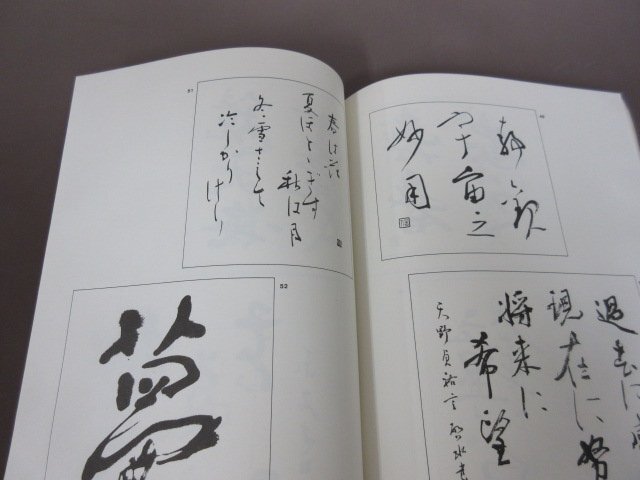 静観
宇宙之
妙用
過去に感
現在に努
将来に
希望
天野貞祐言
51
春は花
夏ほとゝぎす
秋は月
冬雪さえて
冷しかり
けり
52
夢